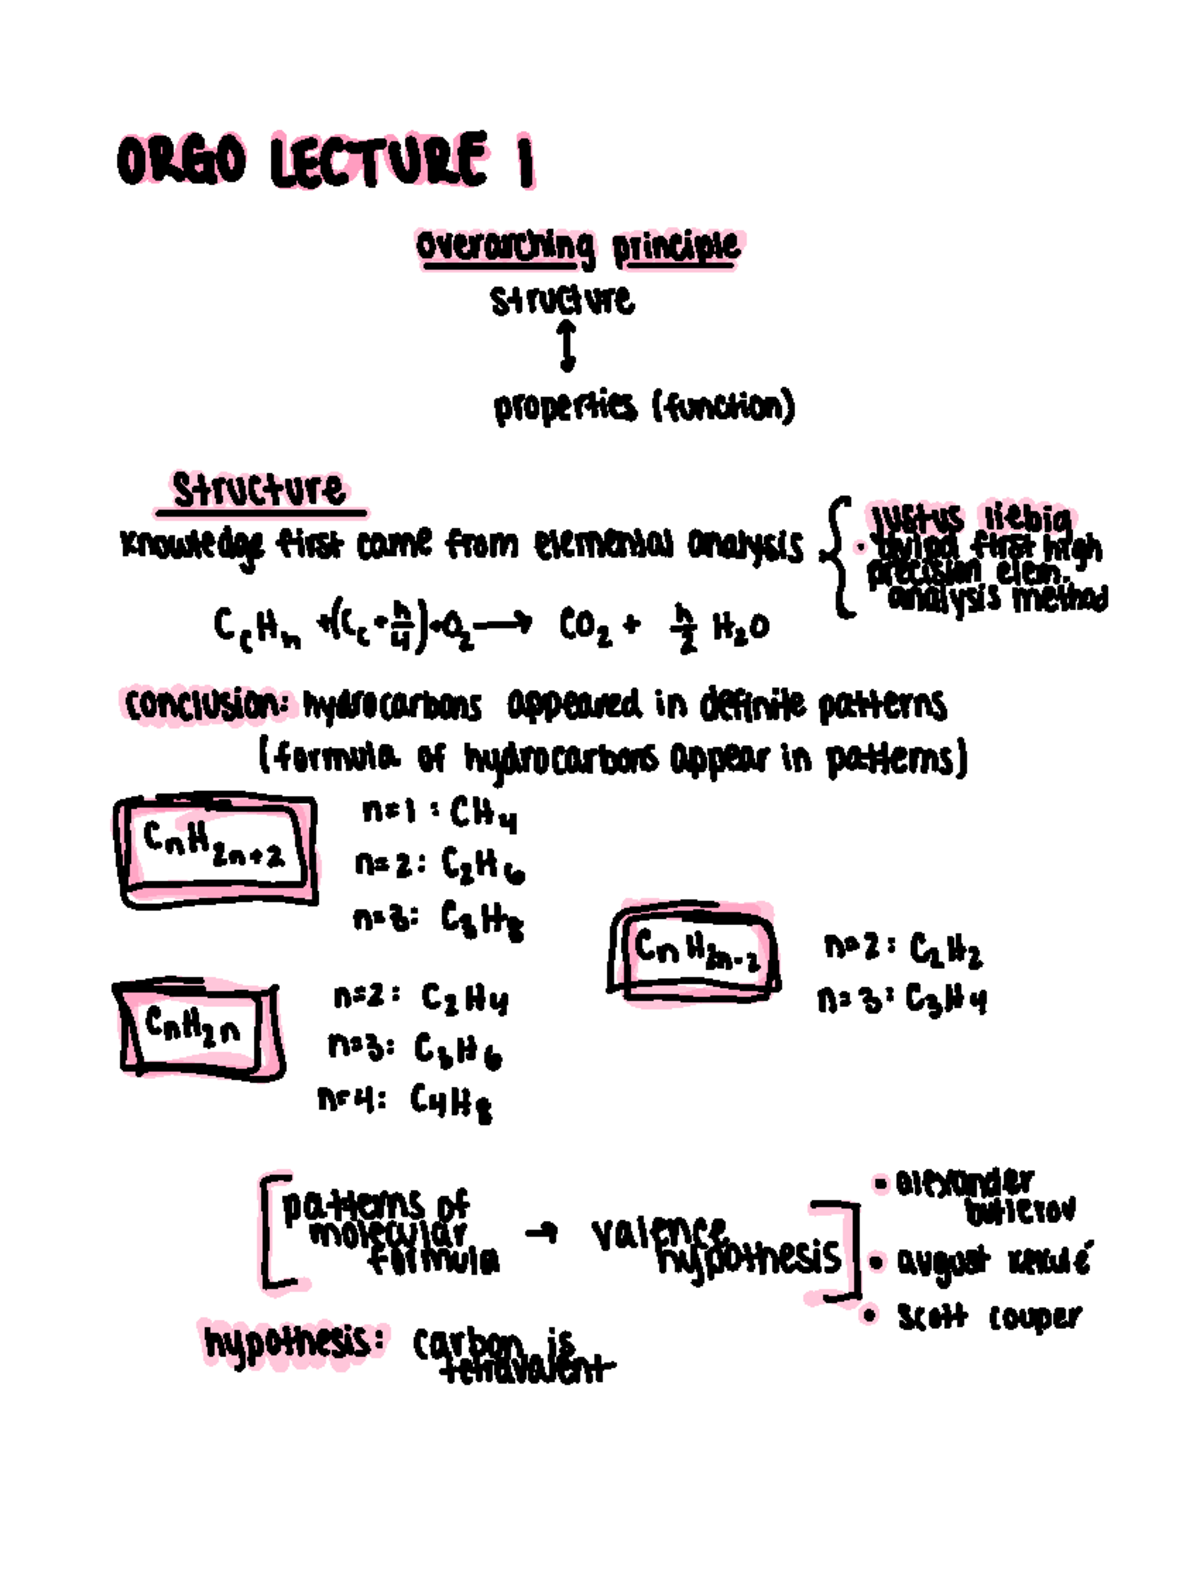 ORGO LECTURE 1
overarching principle
structure
↕
properties (function)
Structure
knowledge first came from elemental analysis
justus liebig
• first high
precision elem.
analysis method
C_cH_n + (C_c + n/4) • O₂ → CO₂ + n/2 H₂O
conclusion: hydrocarbons appeared in definite patterns
(formula of hydrocarbons appear in patterns)
CₙH₂ₙ₊₂
n=1 : CH₄
n=2: C₂H₆
n=3: C₃H₈
CₙH₂ₙ₋₂
n=2: C₂H₂
n=3: C₃H₄
CₙH₂ₙ
n=2: C₂H₄
n=3: C₃H₆
n=4: C₄H₈
patterns of
molecular
formula
→ valence
hypothesis
• alexander
butlerov
• august kekulé
• scott couper
hypothesis: carbon is
tetravalent